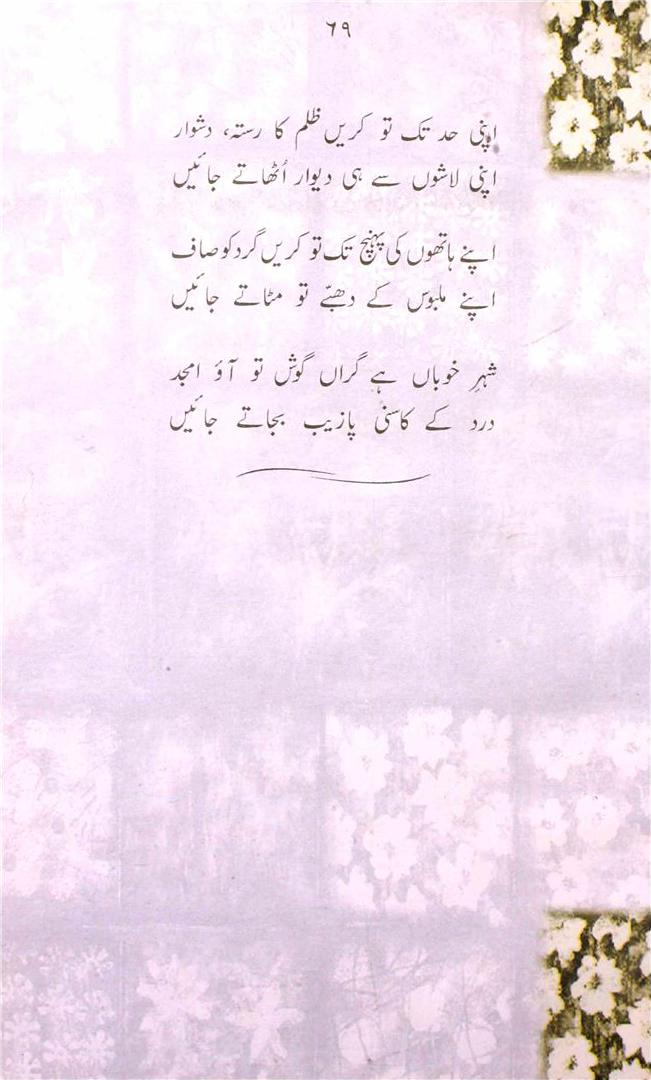 ۶۹
اپنی حد تک تو کریں ظلم کا رستہ، دشوار
اپنی لاشوں سے ہی دیوار اُٹھاتے جائیں
اپنے ہاتھوں کی پہنچ تک تو کریں گرد کو صاف
اپنے ملبوس کے دھبّے تو مٹاتے جائیں
شہرِ خوباں ہے گراں گوش تو آؤ امجد
درد کے کاسنی پازیب بجاتے جائیں